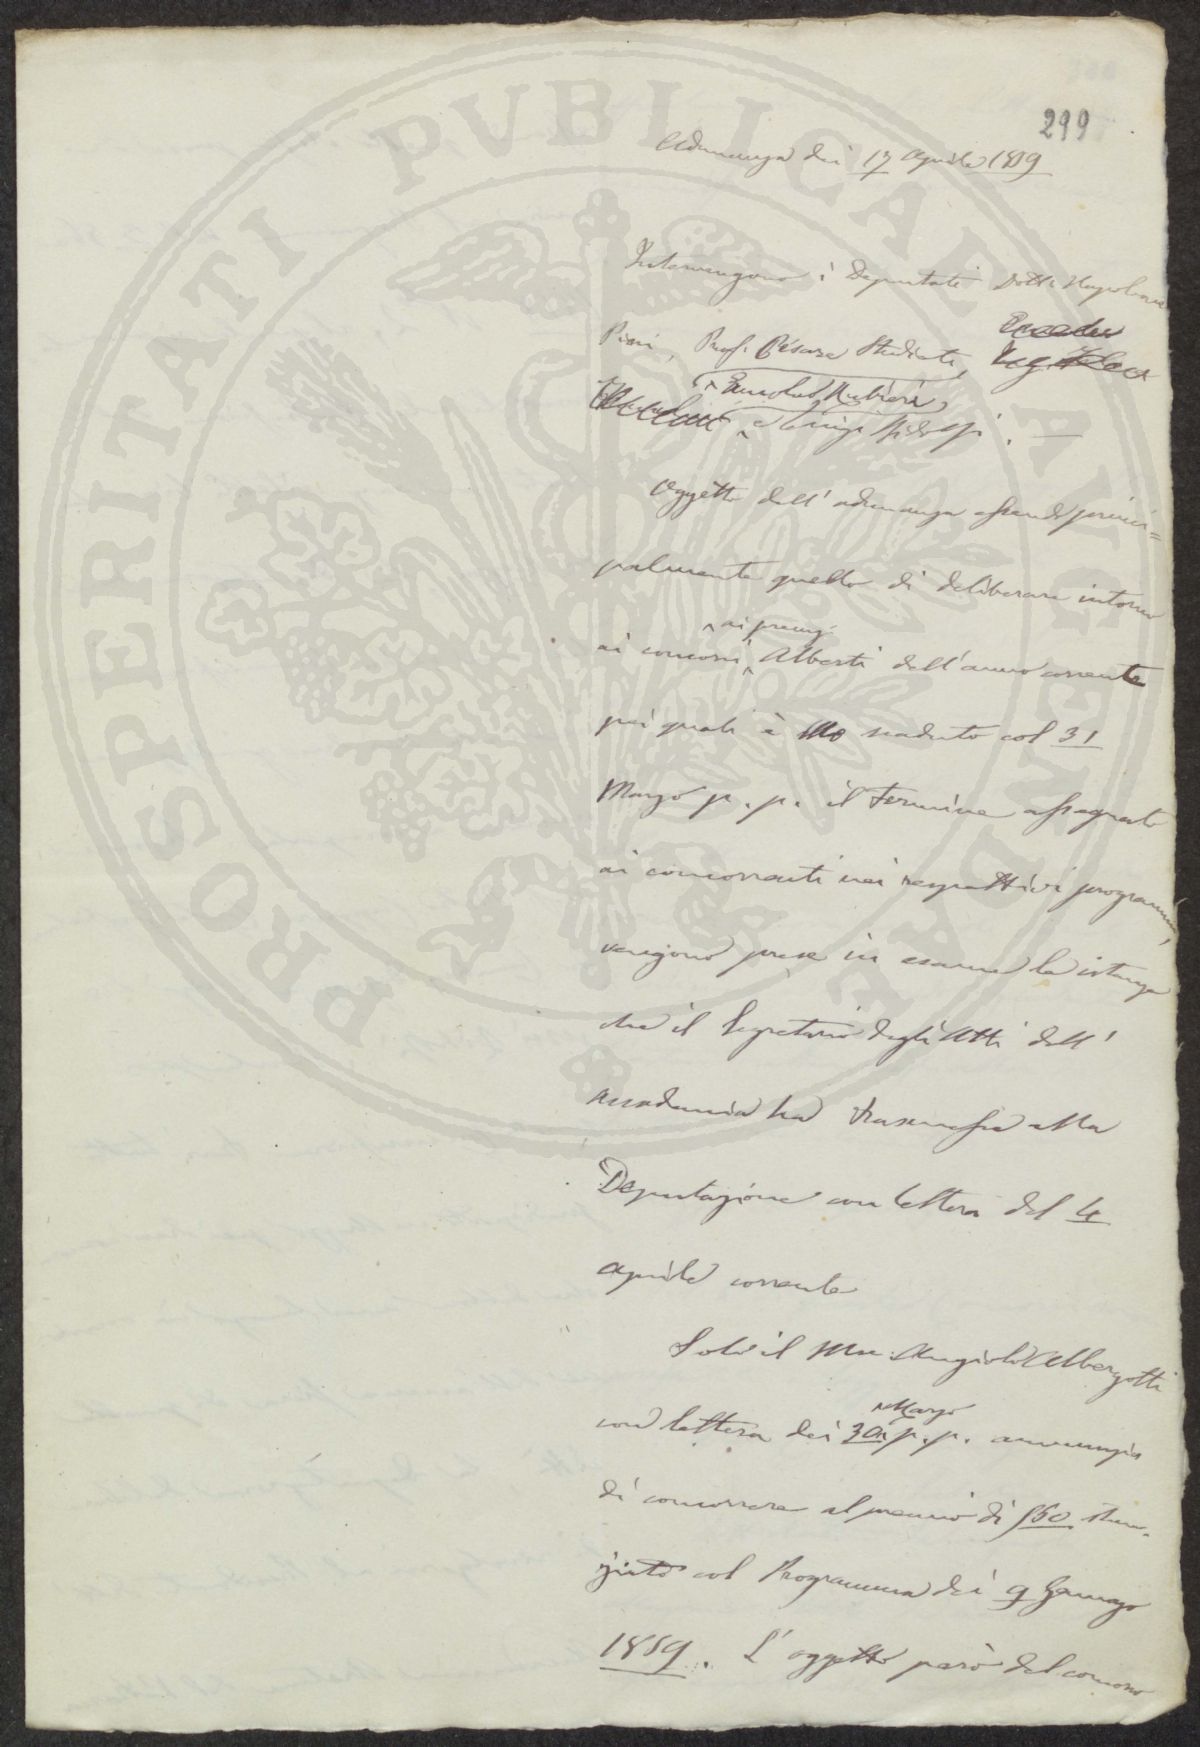 299
Adunanza dei 17 Aprile 1859
Intervengono i Deputati Dott. Napoleone
Pini, Prof. Cesare Studiati,
Ermolao Rubieri,
e Luigi Ridolfi. —
Oggetto dell'adunanza essendo princi=
palmente quello di deliberare intorno
ai premj
ai concorsi Alberti dell'anno corrente
pei quali è scaduto col 31
Marzo p. p. il termine assegnato
ai concorrenti nei respettivi programmi,
vengono prese in esame le istanze
che il Segretario degli Atti dell'
Accademia ha trasmesse alla
Deputazione con lettera del 4
Aprile corrente
Solo il Angiolo Albergotti
Marzo
con lettera dei 30 p. p. annunzia
di concorrere al premio di
ziato col Programma dei 9 Gennajo
1859. L'oggetto però del concorso
PROSPERITATI PVBLICAE AVGENDAE